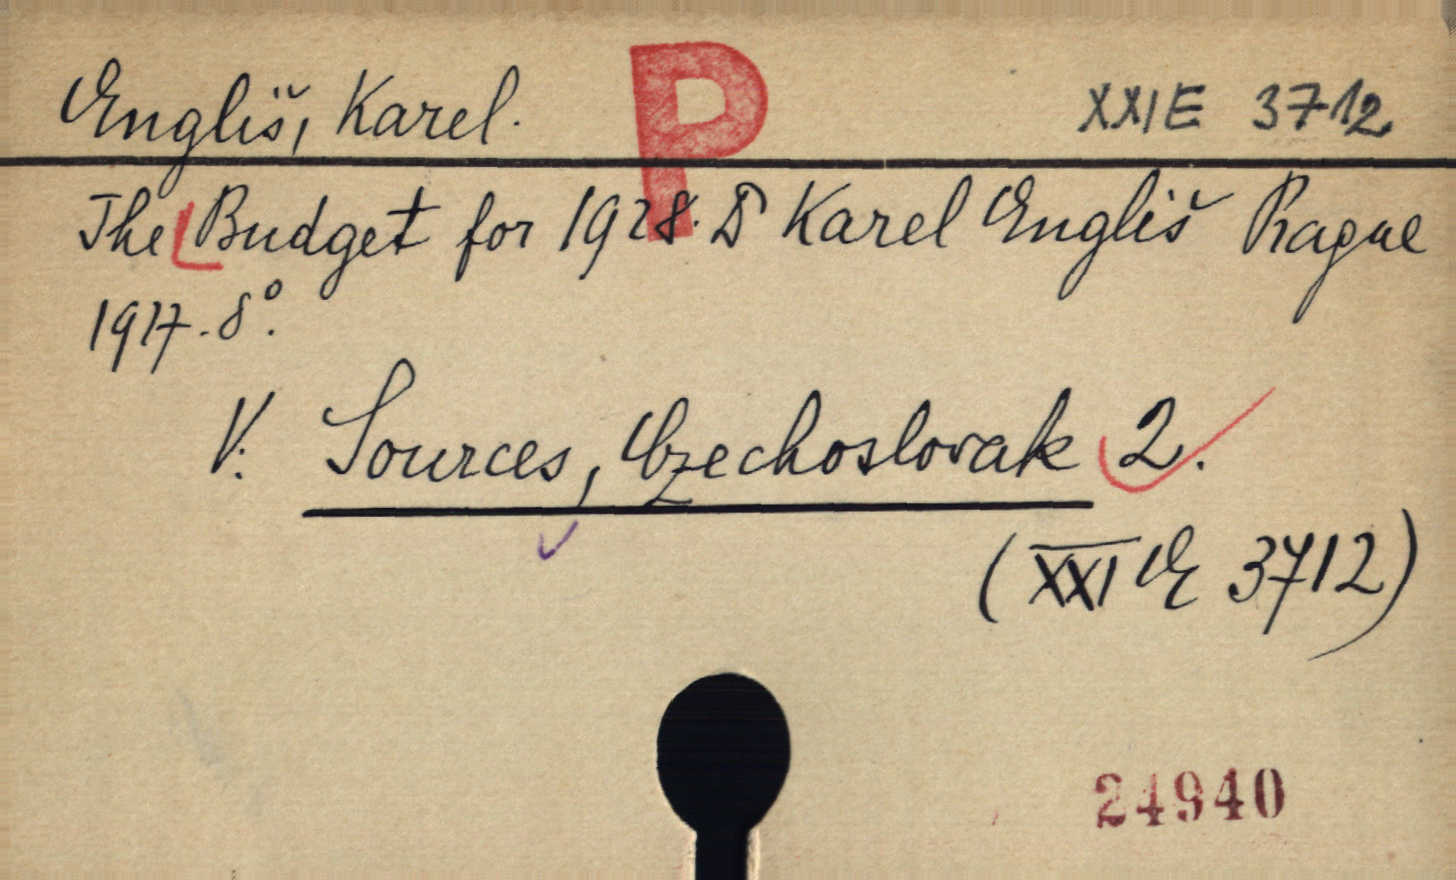 Engliš, Karel.
P
XXIE 3712
The Budget for 1928. Dr Karel Engliš Prague
1917. 8°.
V. Sources, Czechoslovak 2.
(XXI E 3712)
24940